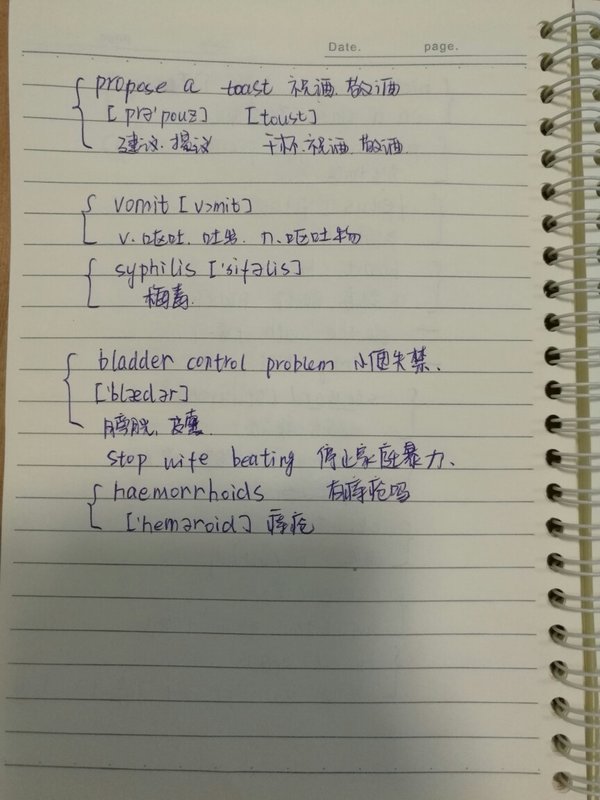 Date. page.
propose a toast 祝酒.敬酒
[prə'pouz] [toust]
建议.提议 干杯.祝酒.敬酒
vomit [vɔmit]
v.呕吐.吐出. n.呕吐物
syphilis ['sifəlis]
梅毒.
bladder control problem 小便失禁.
['blædər]
膀胱.皮囊
stop wife beating 停止家庭暴力.
haemorrhoids 有痔疮吗
['hemərɔid] 痔疮